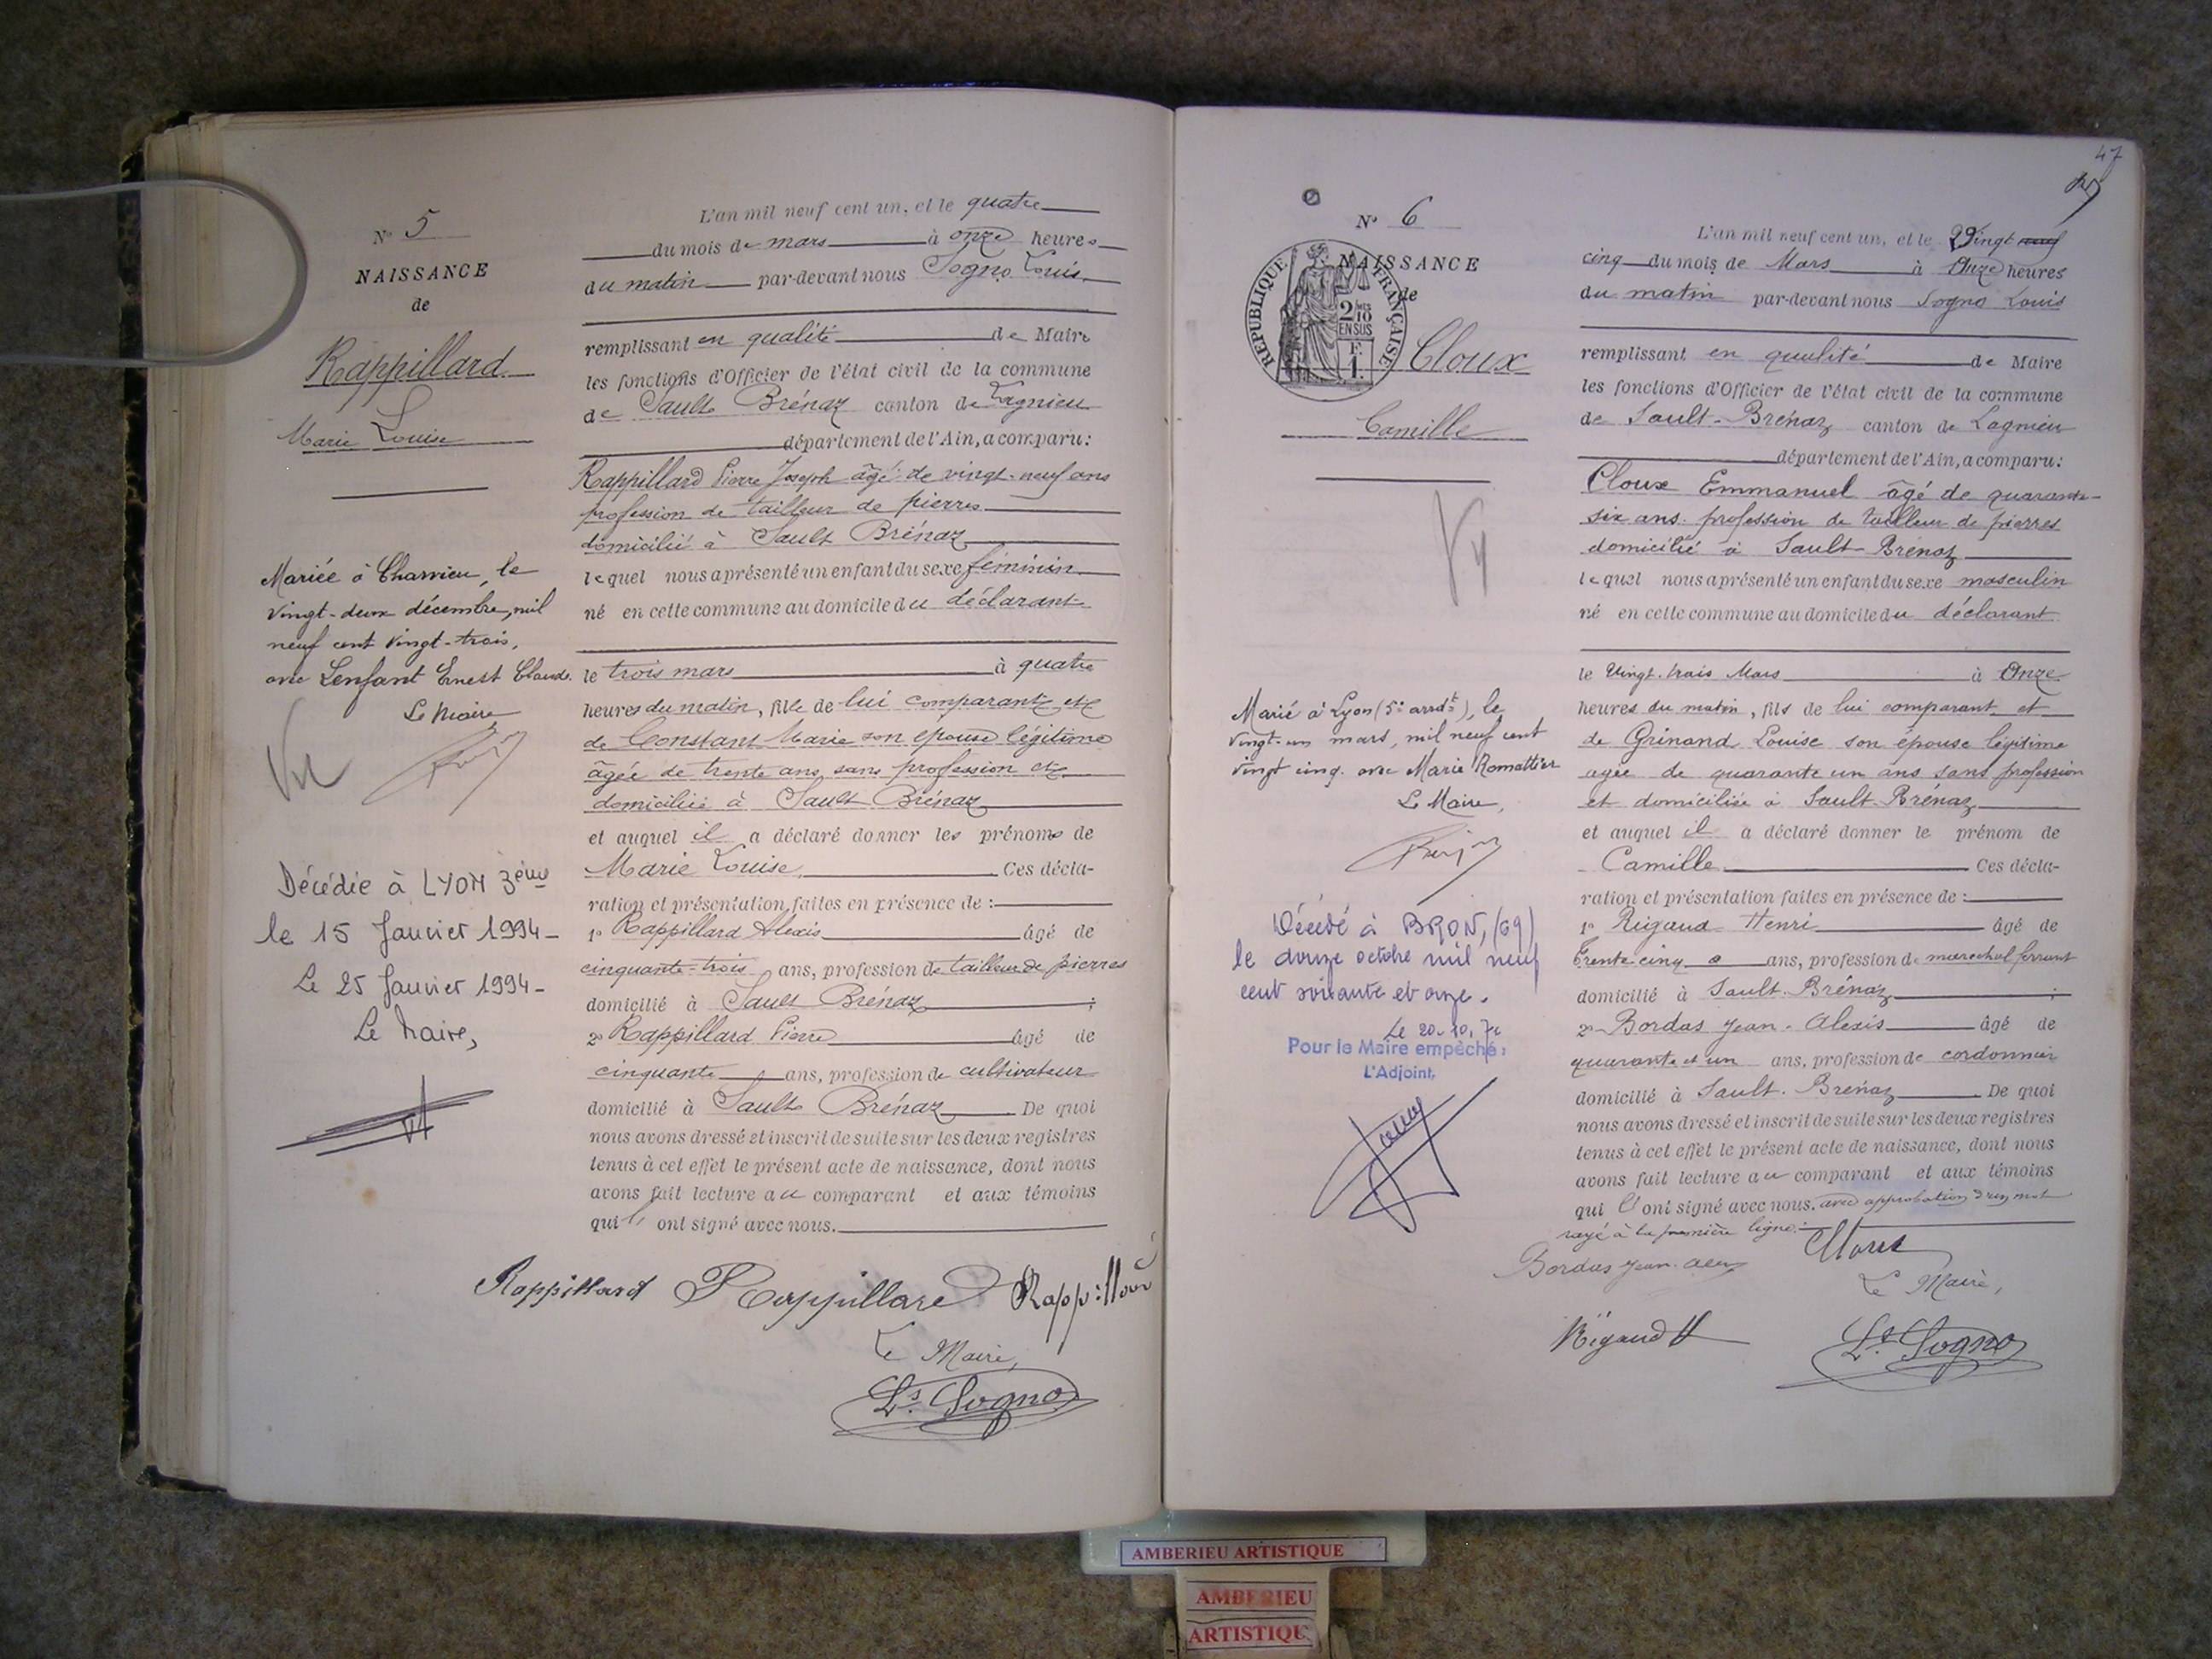 N° 5
NAISSANCE
de
Rappillard
Marie Louise
Mariée à Charvieu, le
vingt-deux décembre, mil
neuf cent vingt-trois,
avec Lenfant Ernest Claude.
Le Maire
Décédée à LYON 3ème
le 15 Janvier 1994 -
Le 25 Janvier 1994 -
Le Maire,
L'an mil neuf cent un, et le quatre
du mois de mars à onze heures
du matin par-devant nous Sogno Louis
remplissant en qualité de Maire
les fonctions d'Officier de l'état civil de la commune
de Sault Brénaz canton de Lagnieu
département de l'Ain, a comparu:
Rappillard Pierre Joseph âgé de vingt-neuf ans
profession de tailleur de pierres
domicilié à Sault Brénaz
lequel nous a présenté un enfant du sexe féminin
né en cette commune au domicile du déclarant
le trois mars à quatre
heures du matin, fille de lui comparant et
de Constant Marie son épouse légitime
âgée de trente ans, sans profession et
domiciliée à Sault Brénaz
et auquel il a déclaré donner les prénoms de
Marie Louise. Ces décla-
ration et présentation faites en présence de :
1° Rappillard Alexis âgé de
cinquante-trois ans, profession de tailleur de pierres
domicilié à Sault Brénaz ;
2° Rappillard Pierre âgé de
cinquante ans, profession de cultivateur
domicilié à Sault Brénaz De quoi
nous avons dressé et inscrit de suite sur les deux registres
tenus à cet effet le présent acte de naissance, dont nous
avons fait lecture au comparant et aux témoins
qui ont signé avec nous.
Rappillard Rappillard Rappillard
Le Maire,
Ls. Sogno
47
N° 6
NAISSANCE
de
RÉPUBLIQUE FRANÇAISE
2/10
EN SUS
F.
1.
Cloux
Camille
Marié à Lyon (5e arrdt), le
vingt-un mars, mil neuf cent
vingt cinq. avec Marie Romattier
Le Maire,
Décédé à BRON, (69)
le douze octobre mil neuf
cent soixante et onze.
Le 20-10.
Pour le Maire empêché:
L'Adjoint,
L'an mil neuf cent un, et le Vingt neuf
cinq du mois de Mars à Onze heures
du matin par-devant nous Sogno Louis
remplissant en qualité de Maire
les fonctions d'Officier de l'état civil de la commune
de Sault-Brénaz canton de Lagnieu
département de l'Ain, a comparu:
Cloux Emmanuel âgé de quarante-
six ans. profession de tailleur de pierres
domicilié à Sault-Brénaz
lequel nous a présenté un enfant du sexe masculin
né en cette commune au domicile du déclarant
le Vingt-trois Mars à Onze
heures du matin, fils de lui comparant et
de Grinand Louise son épouse légitime
agée de quarante un ans sans profession
et domiciliée à Sault-Brénaz
et auquel il a déclaré donner le prénom de
Camille Ces décla-
ration et présentation faites en présence de :
1° Rigaud Henri âgé de
Trente-cinq ans, profession de marechal ferrant
domicilié à Sault-Brénaz ;
2° Bordas Jean-Alexis âgé de
quarante et un ans, profession de cordonnier
domicilié à Sault-Brénaz De quoi
nous avons dressé et inscrit de suite sur les deux registres
tenus à cet effet le présent acte de naissance, dont nous
avons fait lecture au comparant et aux témoins
qui ont signé avec nous. avec approbation d'un mot
rayé à la première ligne.
Bordas Jean Cloux
Le Maire,
Rigaud H
Ls. Sogno
AMBERIEU ARTISTIQUE
AMBERIEU
ARTISTIQUE